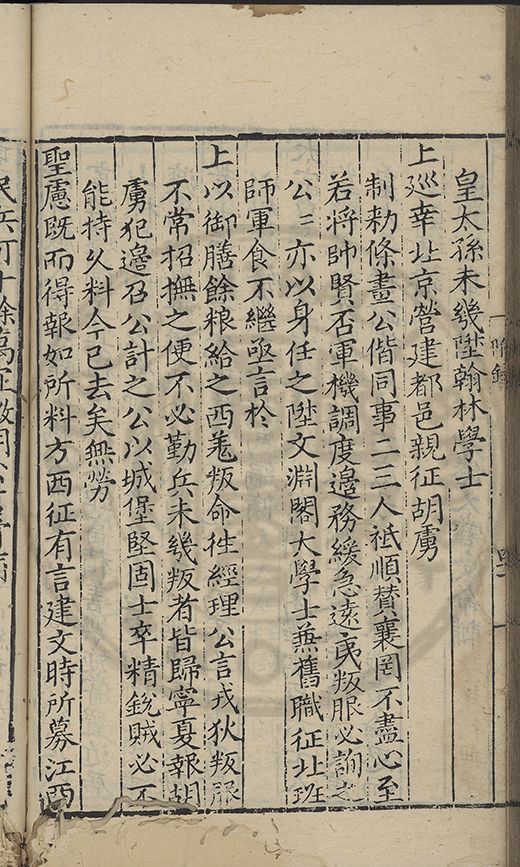 皇太孫未幾陞翰林學士
上廵幸北京營建都邑親征胡虜
制勑條畫公偕同事二三人祗順賛襄罔不盡心至
若將帥賢否軍機調度邊務緩急遠夷叛服必詢之
公〻亦以身任之陞文淵閣大學士兼舊職征北班
師軍食不繼亟言於
上以御膳餘粮給之西羗叛命徃經理公言戎狄叛服
不常招撫之便不必勤兵未幾叛者皆歸寧夏報胡
虜犯邊召公計之公以城堡堅固士卒精銳賊必不
能持久料今已去矣無勞
聖慮既而得報如所料方西征有言建文時所募江西
民兵可十餘萬